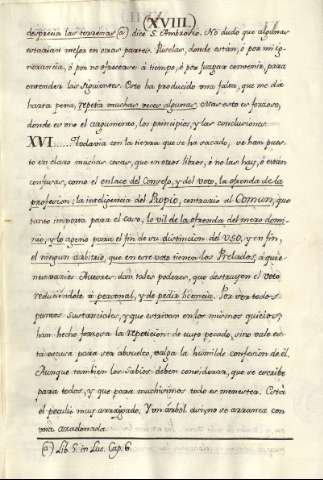 (XVIII.)
desprecia las terrenas (a) dice S. Ambrosio. No dudo que algunas
estarian mejor en otras partes. Puselas, donde están, ó por mi ig-
norancia, ó por no ofrecerse á tiempo, ó por juzgar convenir, para
entender las siguientes. Esto ha producido una falta, que me da
harta pena, repetir muchas veces algunas: otras esto es forzoso,
donde es uno el argumento, los principios, y las conclusiones.
XVI......Todavia con la tierra que se ha sacado, se han pues-
to en claro muchas cosas, que en otros libros, ó no las hay, ó están
confusas, como el enlace del Consejo, y del voto, la ofrenda de la
profesion, la inteligencia del Propio, contrario al Comun, que
tanto importa para el caso, lo vil de la ofrenda del mero domi-
nio, y lo ageno para el fin de su distincion del uso, y en fin,
el ningun arbitrio, que en este voto tienen los Prelados, á quie-
nes varios Autores dan tales poderes, que destruyen el voto
reduciendole á personal, y de pedir licencia. Por ser todos
puntos sustanciales, y que estriban en los mismos quicios,
han hecho forzosa la repeticion de cuyo pecado, sino vale es-
ta escusa para ser absuelto, valga la humilde confesion de él.
Aunque tambien los Sabios deben considerar, que se escribe
para todos, y que para muchisimos todo es menester. Está
el peculio muy arraigado, Y un arbol asi no se arranca con
una azadonada.
(a) Lib. 5. in Luc. Cap. 6.